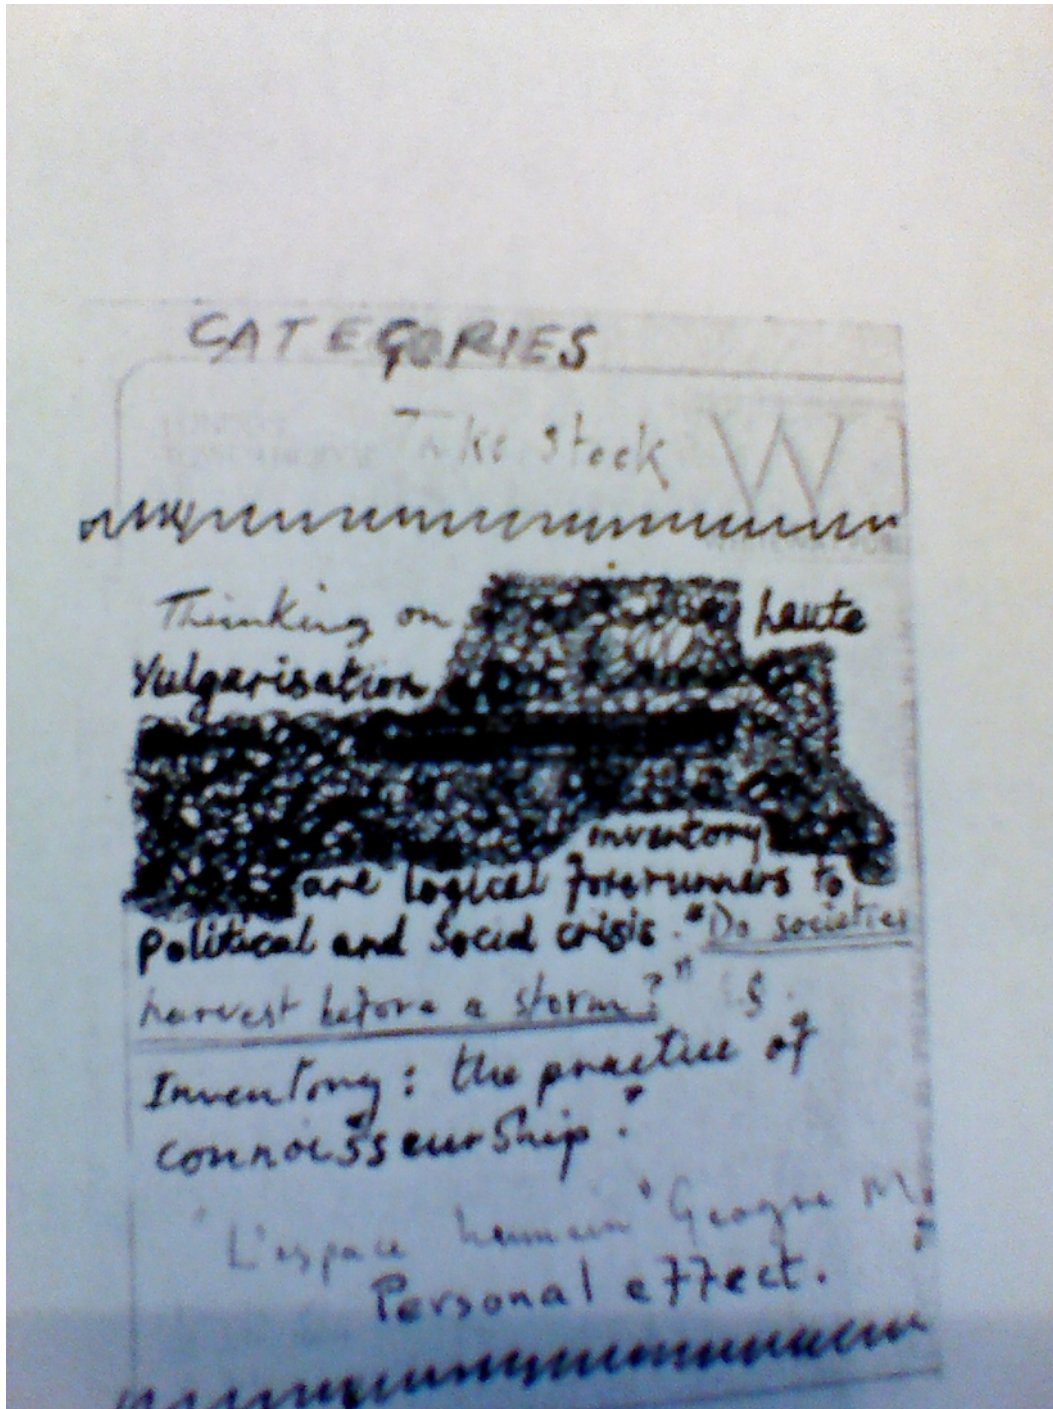 CATEGORIES
Take stock
W
Thinking on haute
Vulgarisation
inventory
are logical forerunners to
political and social crisis. "Do societies
harvest before a storm?"
Inventory: the practice of
connoisseurship.
"L'espace humain"
Personal effect.